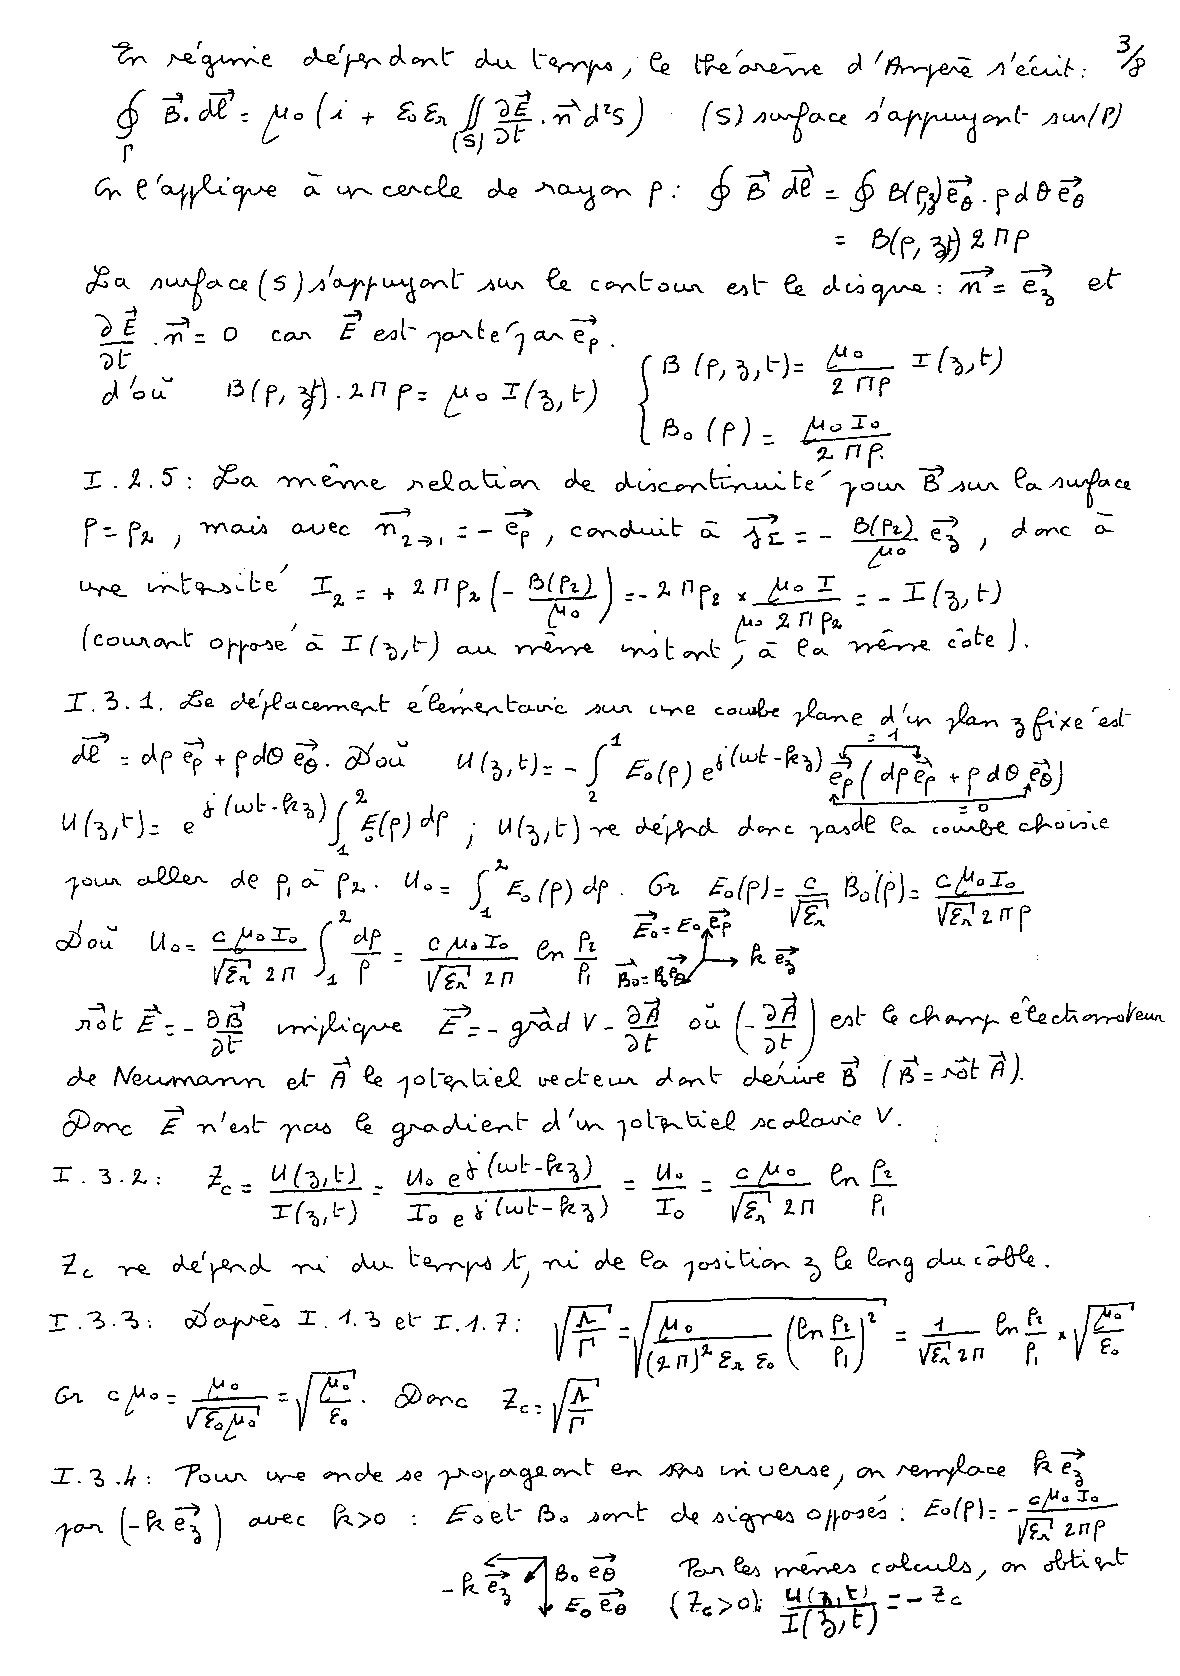 En régime dépendant du temps, le théorème d'Ampère s'écrit : 3/8
∮_Γ B⃗. dl⃗ = μ₀ (i + ε₀ εᵣ ∬_(S) ∂E⃗/∂t . n⃗ d²S) (S) surface s'appuyant sur (Γ)
On l'applique à un cercle de rayon ρ : ∮ B⃗ dl⃗ = ∮ B(ρ,z) e⃗_θ . ρ dθ e⃗_θ
= B(ρ, z,t) 2πρ
La surface (S) s'appuyant sur le contour est le disque : n⃗ = e⃗_z et
∂E⃗/∂t . n⃗ = 0 car E⃗ est porté par e⃗_ρ.
d'où B(ρ, z,t). 2πρ = μ₀ I(z,t) { B(ρ, z, t) = μ₀/(2πρ) I(z,t)
B₀(ρ) = μ₀ I₀/(2πρ)
I.2.5 : La même relation de discontinuité pour B⃗ sur la surface
ρ = ρ₂, mais avec n⃗_2→1 = - e⃗_ρ, conduit à j⃗_Σ = - B(ρ₂)/μ₀ e⃗_z, donc à
une intensité I₂ = + 2πρ₂ (- B(ρ₂)/μ₀) = - 2πρ₂ × μ₀ I/(μ₀ 2πρ₂) = - I(z,t)
(courant opposé à I(z,t) au même instant, à la même côte).
I.3.1. Le déplacement élémentaire sur une courbe plane d'un plan z fixé est
dl⃗ = dρ e⃗_ρ + ρ dθ e⃗_θ. D'où U(z,t) = - ∫₂¹ E₀(ρ) e^{j(ωt-kz)} e⃗_ρ (dρ e⃗_ρ + ρ dθ e⃗_θ) =1 =0
U(z,t) = e^{j(ωt-kz)} ∫₁² E₀(ρ) dρ ; U(z,t) ne dépend donc pas de la courbe choisie
pour aller de ρ₁ à ρ₂. U₀ = ∫₁² E₀(ρ) dρ. Or E₀(ρ) = c/√εᵣ B₀(ρ) = c μ₀ I₀/(√εᵣ 2πρ)
D'où U₀ = c μ₀ I₀/(√εᵣ 2π) ∫₁² dρ/ρ = c μ₀ I₀/(√εᵣ 2π) ln ρ₂/ρ₁ E⃗₀ = E₀ e⃗_ρ B⃗₀ = B₀ e⃗_θ k e⃗_z
rot⃗ E⃗ = - ∂B⃗/∂t implique E⃗ = - grad⃗ V - ∂A⃗/∂t où (- ∂A⃗/∂t) est le champ électromoteur
de Neumann et A⃗ le potentiel vecteur dont dérive B⃗ (B⃗ = rot⃗ A⃗).
Donc E⃗ n'est pas le gradient d'un potentiel scalaire V.
I.3.2 : Z_c = U(z,t)/I(z,t) = U₀ e^{j(ωt-kz)}/(I₀ e^{j(ωt-kz)}) = U₀/I₀ = c μ₀/(√εᵣ 2π) ln ρ₂/ρ₁
Z_c ne dépend ni du temps t, ni de la position z le long du câble.
I.3.3 : D'après I.1.3 et I.1.7 : √(Λ/Γ) = √(μ₀/((2π)² εᵣ ε₀) (ln ρ₂/ρ₁)²) = 1/(√εᵣ 2π) ln ρ₂/ρ₁ × √(μ₀/ε₀)
Or c μ₀ = μ₀/√(ε₀μ₀) = √(μ₀/ε₀). Donc Z_c = √(Λ/Γ)
I.3.4 : Pour une onde se propageant en sens inverse, on remplace k e⃗_z
par (-k e⃗_z) avec k>0 : E₀ et B₀ sont de signes opposés : E₀(ρ) = - c μ₀ I₀/(√εᵣ 2πρ)
-k e⃗_z B₀ e⃗_θ E₀ e⃗_θ Par les mêmes calculs, on obtient
(Z_c>0) : U(z,t)/I(z,t) = - Z_c